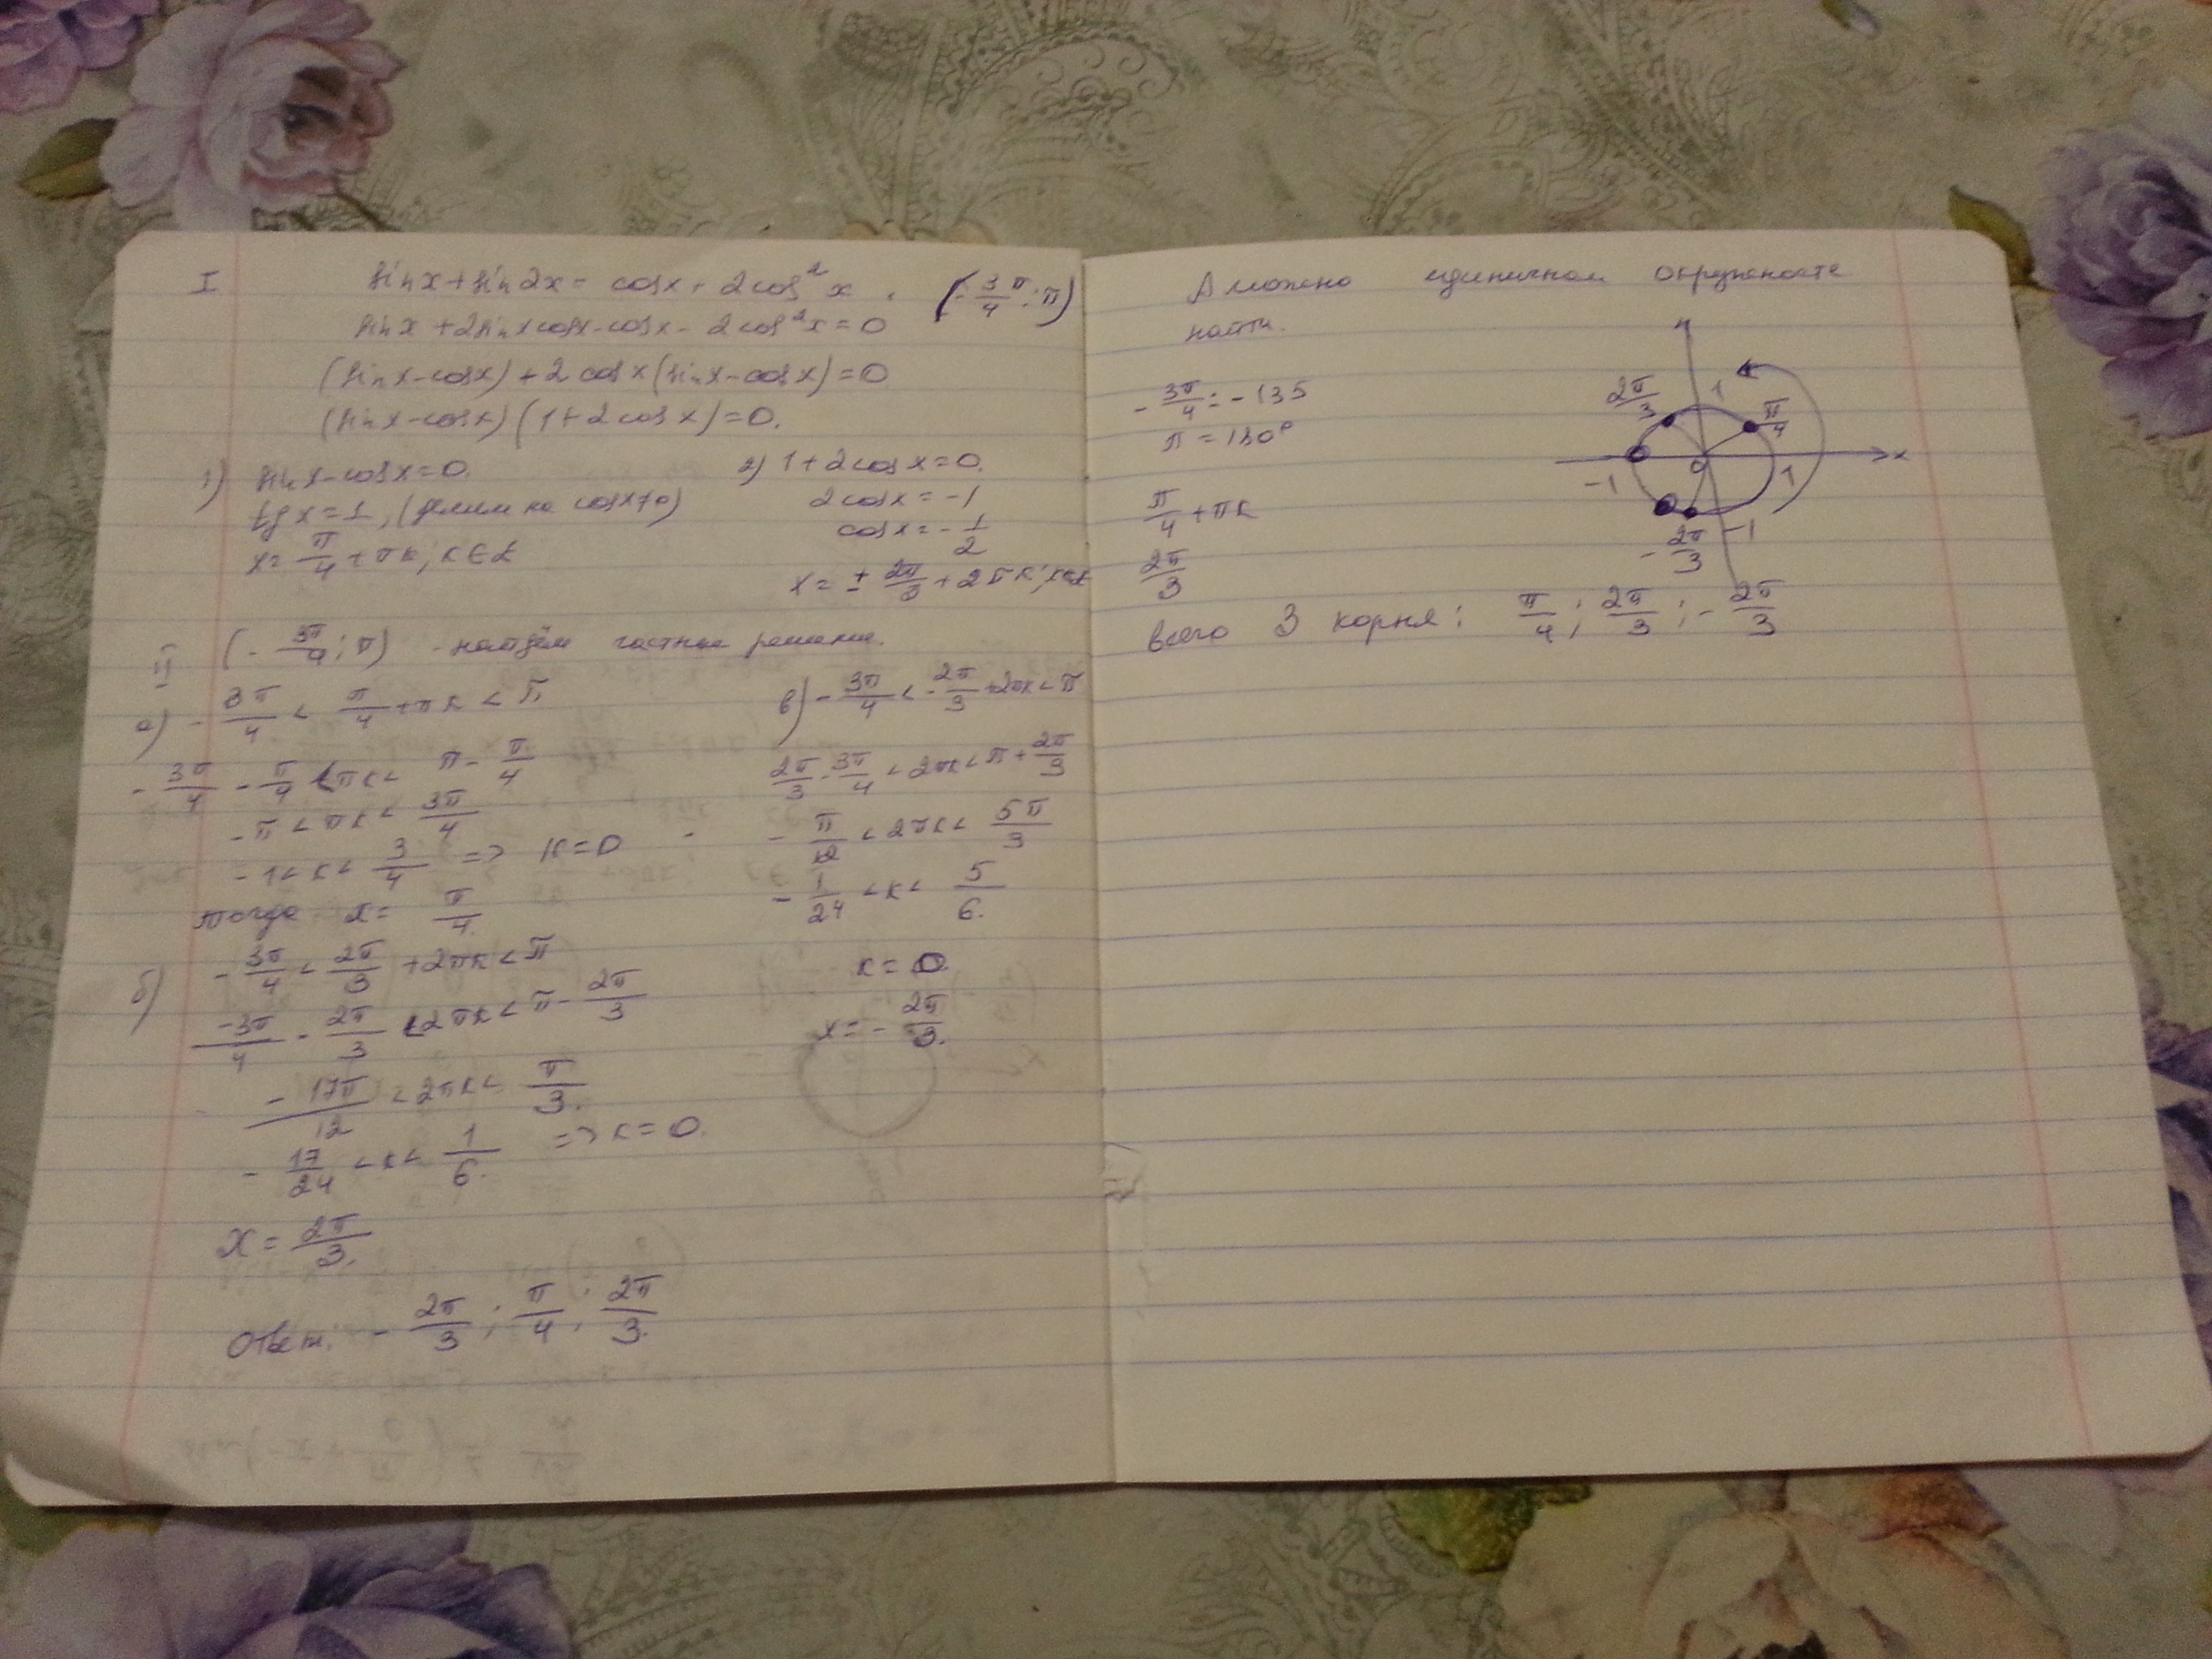 I sin x + sin 2x = cos x + 2cos²x, (-3/4 π; π)
sin x + 2sin x cos x - cos x - 2cos²x = 0
(sin x - cos x) + 2 cos x (sin x - cos x) = 0
(sin x - cos x) (1 + 2 cos x) = 0.
1) sin x - cos x = 0.
tg x = 1, (делим на cos x ≠ 0)
x = π/4 + πk, k ∈ Z
2) 1 + 2 cos x = 0.
2cos x = -1
cos x = -1/2
x = ± 2π/3 + 2πk, k∈Z
II (-3π/4; π) - найдём частные решения.
а) -3π/4 < π/4 + πk < π
-3π/4 - π/4 < πk < π - π/4
-π < πk < 3π/4
-1 < k < 3/4 => k = 0
тогда x = π/4.
б) -3π/4 < 2π/3 + 2πk < π
-3π/4 - 2π/3 < 2πk < π - 2π/3
-17π/12 < 2πk < π/3.
-17/24 < k < 1/6. => k = 0.
x = 2π/3.
в) -3π/4 < -2π/3 + 2πk < π
2π/3 - 3π/4 < 2πk < π + 2π/3
-π/12 < 2πk < 5π/3
-1/24 < k < 5/6.
k = 0.
x = -2π/3.
Ответ: -2π/3; π/4; 2π/3.
А можно единичной окружности
найти.
-3π/4 = -135
π = 180°
π/4 + πk
2π/3
2π/3 1 π/4
-1 0 1 x
-2π/3 -1
всего 3 корня: π/4; 2π/3; -2π/3